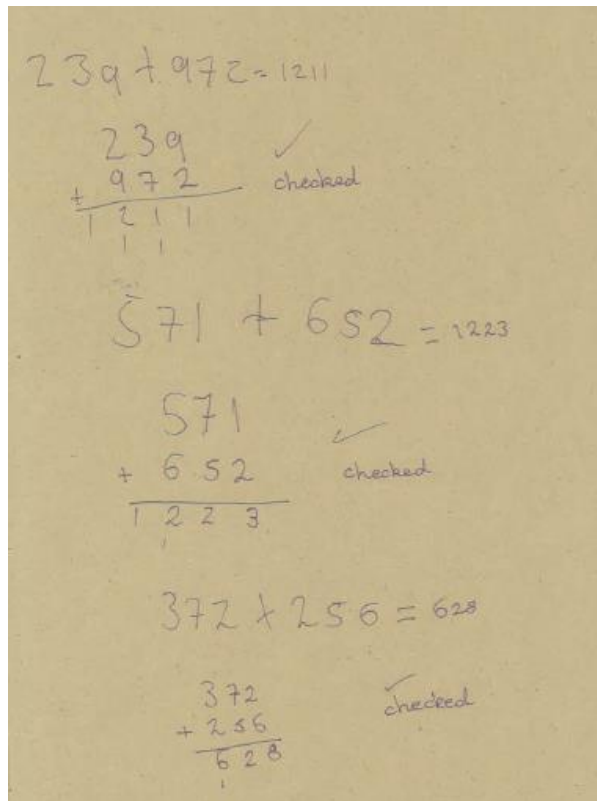 239 + 972 = 1211
239
+ 972
1211
1 1
checked
571 + 652 = 1223
571
+ 652
1223
1
checked
372 + 256 = 628
372
+ 256
628
1
checked